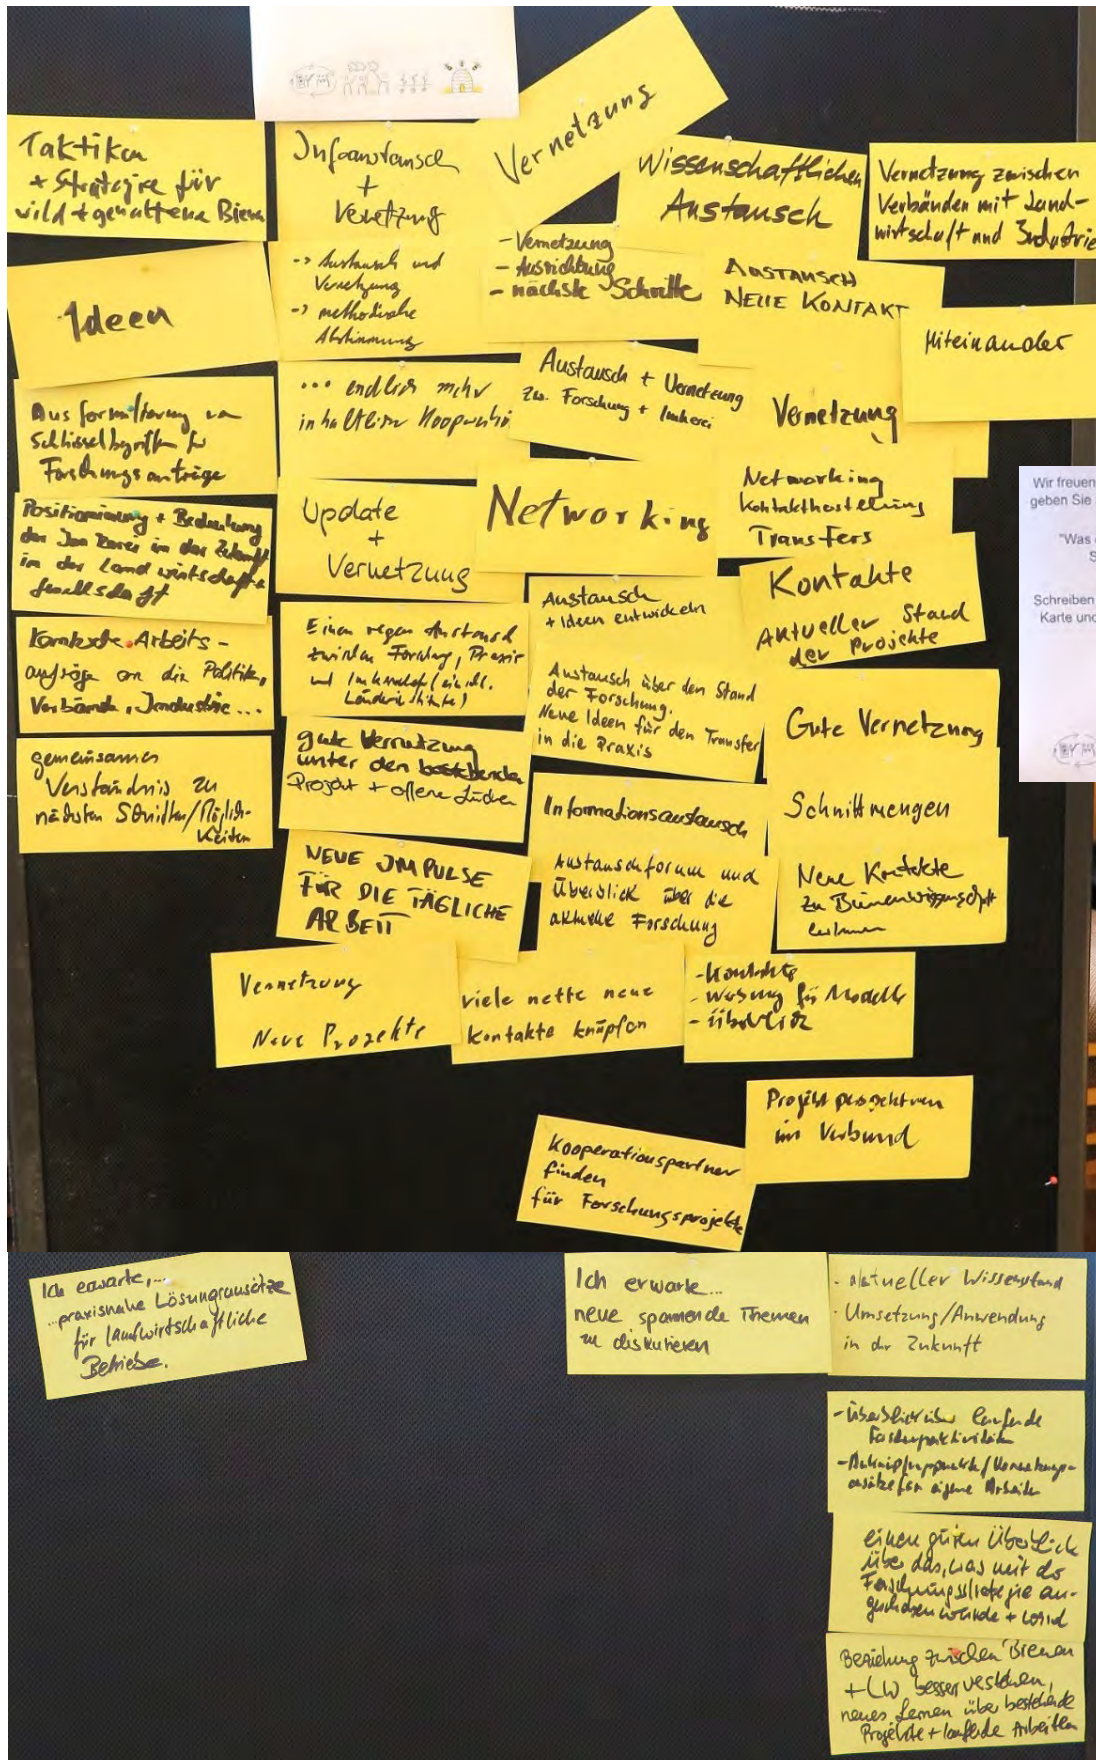 Taktiken
+ Strategie für
wild + gehaltene Bienen
Ideen
Ausformulierung von
Schlüsselbegriffen für
Forschungsanträge
Positionierung + Bedeutung
der Imkerei in der Zukunft
in der Landwirtschaft +
Gesellschaft
Konkrete Arbeits-
aufträge an die Politik,
Verbände, Industrie ...
gemeinsames
Verständnis zu
nächsten Schritten/Möglich-
keiten
Infoaustausch
+
Vernetzung
-> Austausch und
Vernetzung
-> methodische
Abstimmung
... endlich mehr
inhaltliche Kooperation
Update
+
Vernetzung
Einen regen Austausch
zwischen Forschung, Praxis
und
gute Vernetzung
unter den bestehenden
Projekt + offene Lücken
NEUE IMPULSE
FÜR DIE TÄGLICHE
ARBEIT
Vernetzung
Neue Projekte
Vernetzung
- Vernetzung
- Ausrichtung
- nächste Schritte
Austausch + Vernetzung
zw. Forschung + Imkerei
Networking
Austausch
+ Ideen entwickeln
Austausch über den Stand
der Forschung.
Neue Ideen für den Transfer
in die Praxis
Informationsaustausch
Austauschforum und
Überblick über die
aktuelle Forschung
viele nette neue
Kontakte knüpfen
Wissenschaftlichen
Austausch
AUSTAUSCH
NEUE KONTAKT
Vernetzung
Networking
Kontaktherstellung
Transfers
Kontakte
Aktueller Stand
der Projekte
Gute Vernetzung
Schnittmengen
Neue Kontakte
zu Bienenwissenschaft
- Kontakte
- Werbung für Modelle
- Überblick
Vernetzung zwischen
Verbänden mit Land-
wirtschaft und Industrie
Miteinander
Projektperspektiven
im Verbund
Kooperationspartner
finden
für Forschungsprojekte
Wir freuen
geben Sie
"Was
S
Schreiben
Karte und
Ich erwarte,...
...praxisnahe Lösungsansätze
für landwirtschaftliche
Betriebe.
Ich erwarte...
neue spannende Themen
zu diskutieren
- aktueller Wissenstand
- Umsetzung/Anwendung
in der Zukunft
- Überblick über laufende
Forschungsaktivitäten
- Anknüpfungspunkte/Vernetzungs-
ansätze für eigene Arbeiten
einen guten Überblick
über das, was mit der
Forschungsstrategie an-
geschoben wurde + wird
Beziehung zwischen Bienen
+ LW besser verstehen,
neues Lernen über bestehende
Projekte + laufende Arbeiten